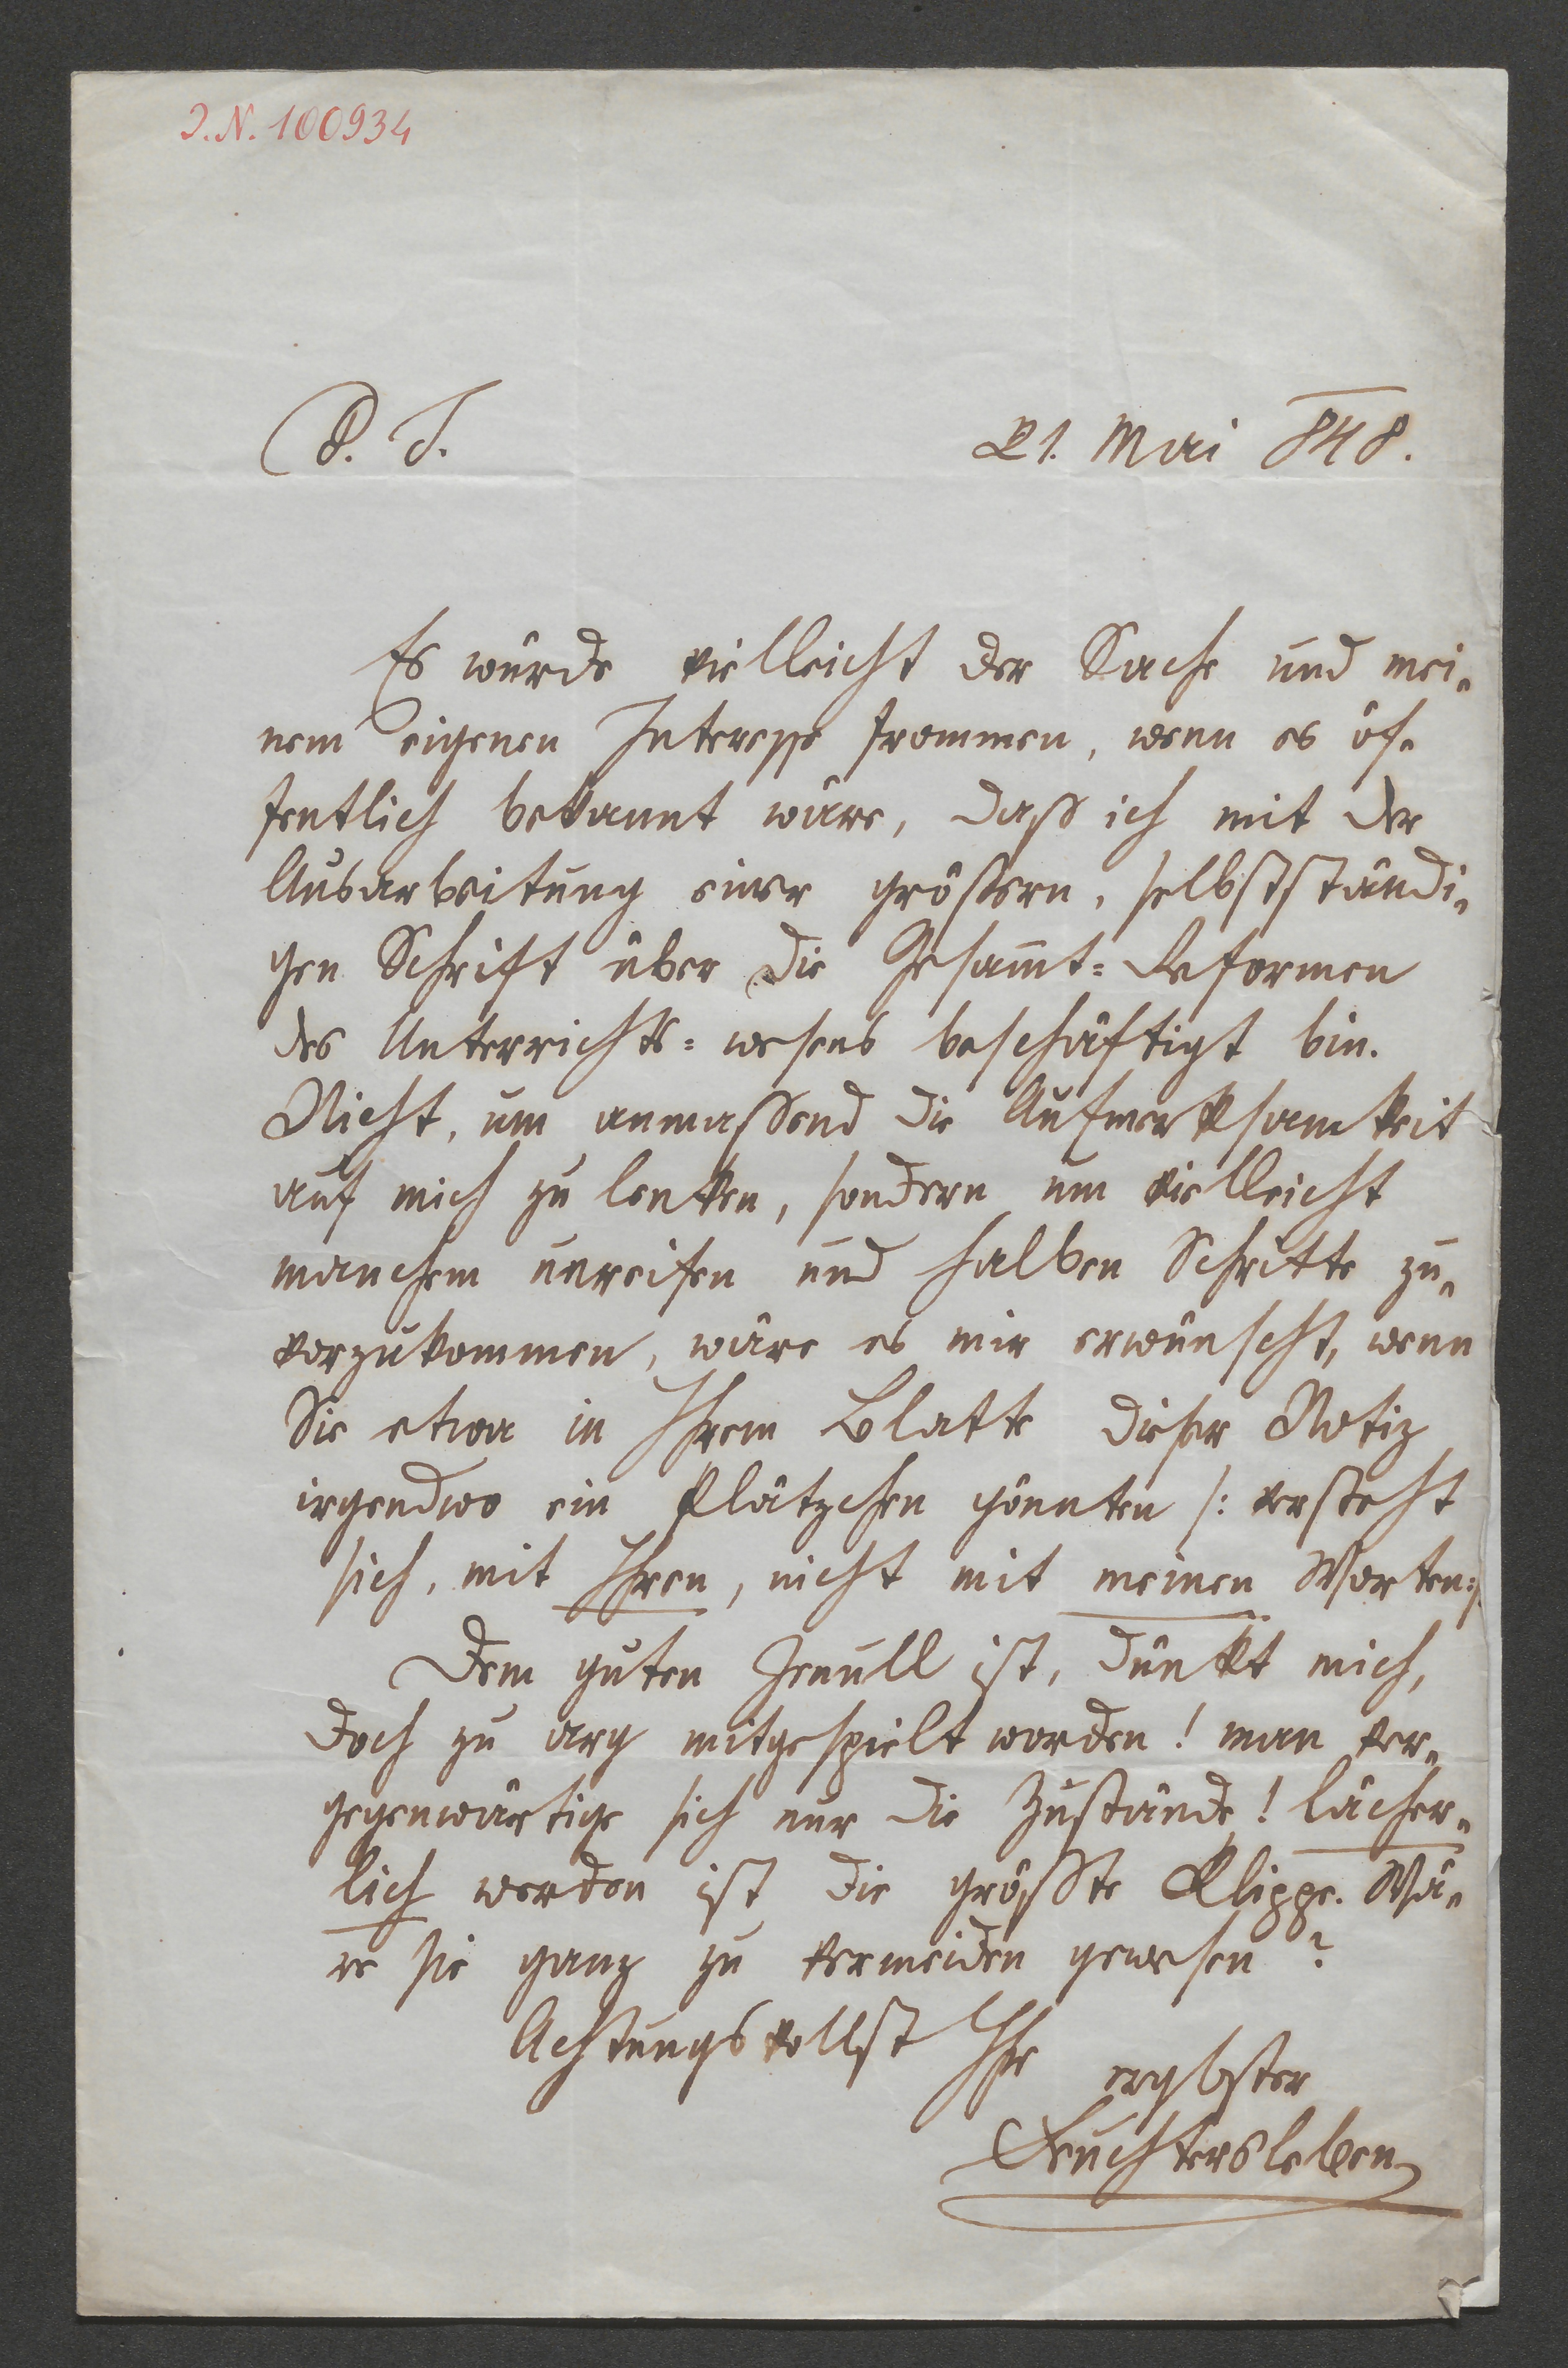 I.N. 100934
P. T.
21. Mai 848.
Es würde vielleicht der Sache und mei-
nem eigenen Interesse frommen, wenn es öf-
fentlich bekannt wäre, daß ich mit der
Ausarbeitung einer größern, selbstständi-
gen Schrift über die Gesam̅t-Reformen
des Unterrichts-wesens beschäftigt bin.
Nicht, um anmaßend die Aufmerksamkeit
auf mich zu lenken, sondern um vielleicht
manchem unreifen und halben Schritte zu-
vorzukommen, wäre es mir erwünscht, wenn
Sie etwa in Ihrem Blatte dieser Notiz
irgendwo ein Plätzchen gönnten /: versteht
sich, mit Ihren, nicht mit meinen Worten :/.
Dem guten Jenull ist, dünkt mich,
doch zu arg mitgespielt worden! man ver-
gegenwärtige sich nur die Zustände! lächer-
lich werden ist die größte Klippe. Wä-
re sie ganz zu vermeiden gewesen?
Achtungsvollst Ihr
ergbster
Feuchtersleben